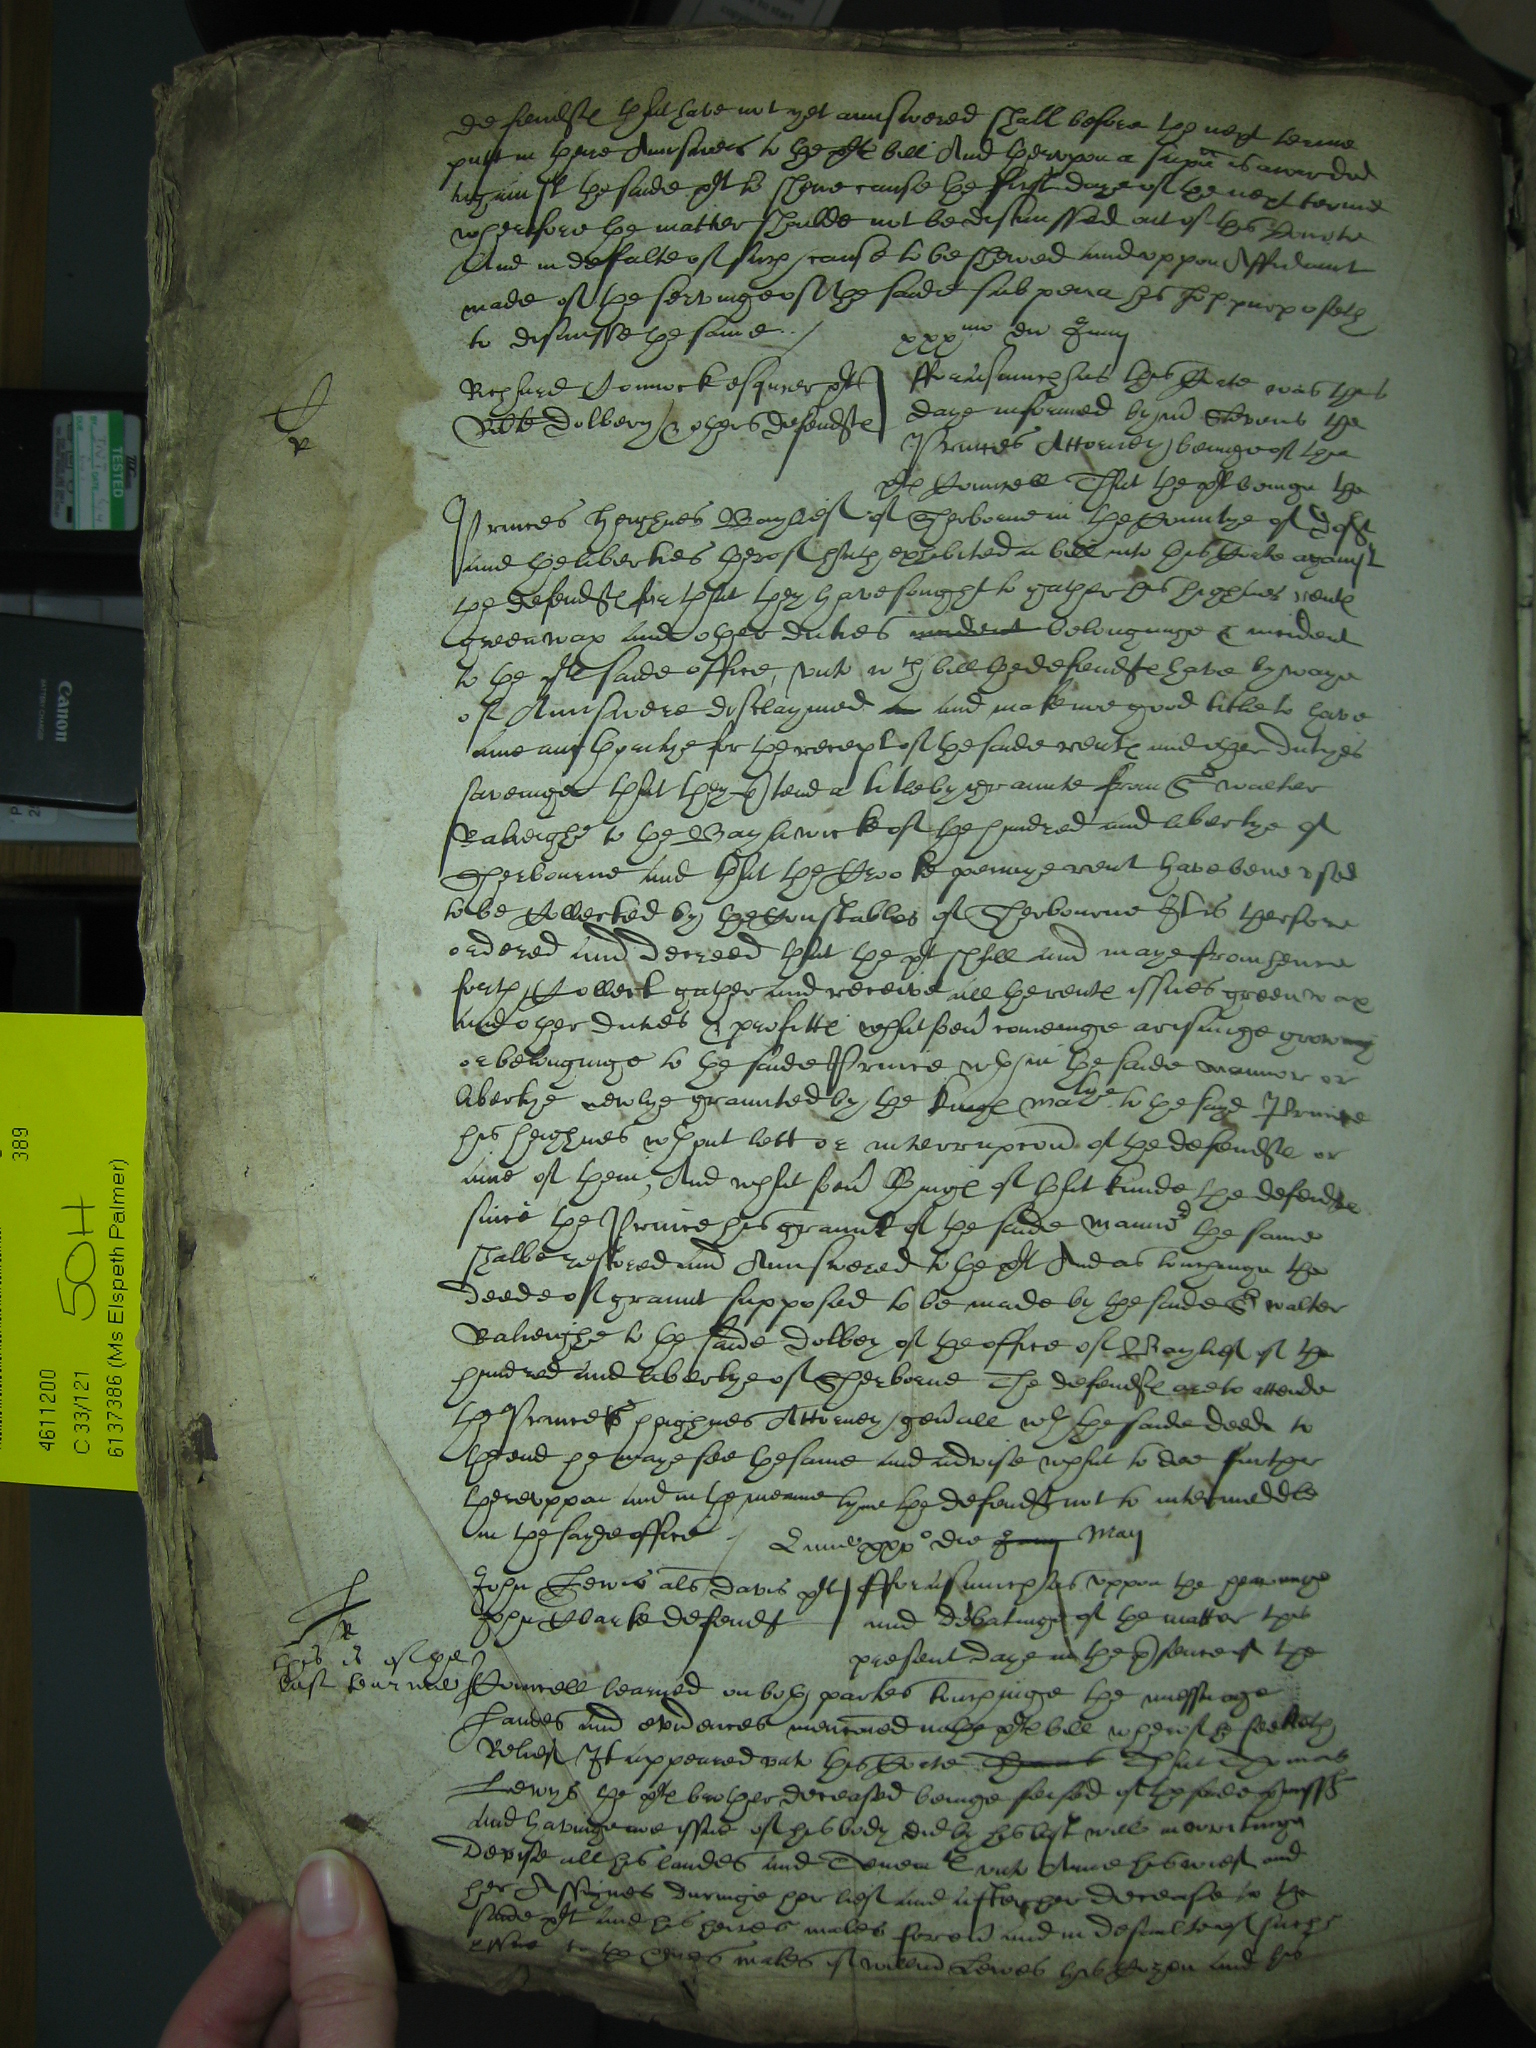 defendtes that have not yet aunswered shall before the next terme
putt in there Aunswers to the plts bill And therupon a supena is awarded
against the saide plt to shewe cause the first daye of the next terme
wherfore the matter shoulde not be dismissed out of this Courte
And in defalte of such cause to be shewed and uppon Affidavit
made of the servinge of the saide subpena this Court purposeth
to dismisse the same
xxx mo die Junii
Richard Connock esquier plt
Dolbery & others defendtes
Forasmuch as this Courte was this
daye informed by Mr Stevens the
Princes Attorney beinge of the
plts Councell That the plt beinge the
Princes heighnes Baylief of Sherborne in the Countye of Dorst
and the liberties therof hath exhibited a bill into this Courte against
the defendtes for that they have sought to gather his highnes rents
greenwax and other duties belonginge & incident
to the plts saide office, unto wch bill the defendtes have by waye
of Aunswere disclaymed and make noe good title to have
anie authoritye for the receipt of the saide rents and other dutyes
saveinge that they ptend a title by graunte from Sr Walter
Raheighe to the Bayliwicke of the hundred and libertye of
Sherbourne and that the pennye rent have bene used
to be Collected by the Constables of Sherbourne It is therfore
ordered and decreed that the plt shall and maye from hence
forth Collect gather and receive all the rents issues greenwax
and other duties & profitts whatsoever comeinge arisinge growing
or belonginge to the saide Prince wthin the saide mannor or
libertye newlye graunted by the Kings matye to the sayd Prince
his heighnes wthout lett or interrupcon of the defendtes or
anie of them, And whatsoever things of that kinde the defendtes
since the Prince his graunt of the saide mannor the same
shalbe restored and Aunswered to the plt And as touchinge the
deede of graunt supposed to be made by the saide Sr Walter
Raheighe to the saide Dolbery of the office of Baylief of the
hundred and libertye of Sherborne The defendtes are to attende
the Princes heighnes Attorney generall wth the saide deede to
thend he maye see the same and advise what to doe further
thereuppon and in the meane tyme the defendtes not to intermeddle
in the sayde office
Lune xxx o die Junii Maii
John Lewis als Davis plt
John Clarke defendt
Forasmuch as uppon the heareinge
and debatinge of the matter this
present daye in the psence of the
this is of the
last tearme
Councell learned on both parties touchinge the messuage
Landes and evidences mencioned in the plts bill wherof he seeketh
Relief It appeared unto this Courte That Thomas
Lewys the plts brother deceased beinge seised of the saide
And havinge noe issue of his body did by his last will in writinge
Devise all his landes and Tenemts unto Anne his wief and
her Assignes duringe her lief and after her decease to the
saide plt and his heires males forever and in defaulte of such
issue to the heires males of Lewes his Cozen and his